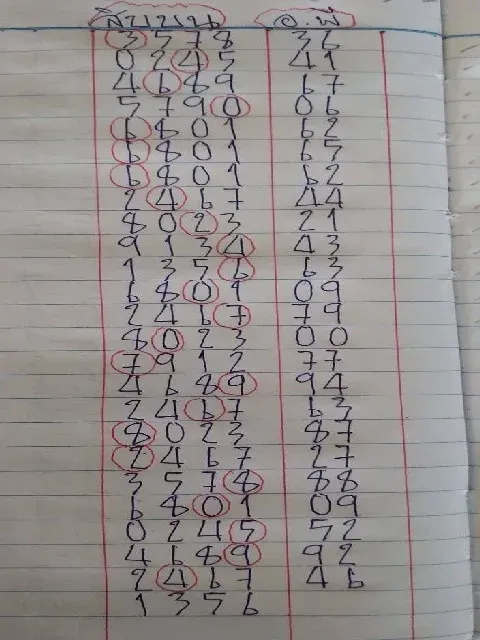 สิบเน้น อ.พี
3 5 7 8 3 6
0 2 4 5 4 1
4 6 8 9 6 7
5 7 9 0 0 6
6 8 0 1 6 2
6 8 0 1 6 5
6 8 0 1 6 2
2 4 6 7 4 4
8 0 2 3 2 1
9 1 3 4 4 3
1 3 5 6 6 3
6 8 0 1 0 9
2 4 6 7 7 9
8 0 2 3 0 0
7 9 1 2 7 7
4 6 8 9 9 4
2 4 6 7 6 3
8 0 2 3 8 7
2 4 6 7 2 7
3 5 7 8 8 8
6 8 0 1 0 9
0 2 4 5 5 2
4 6 8 9 9 2
2 4 6 7 4 6
1 3 5 6